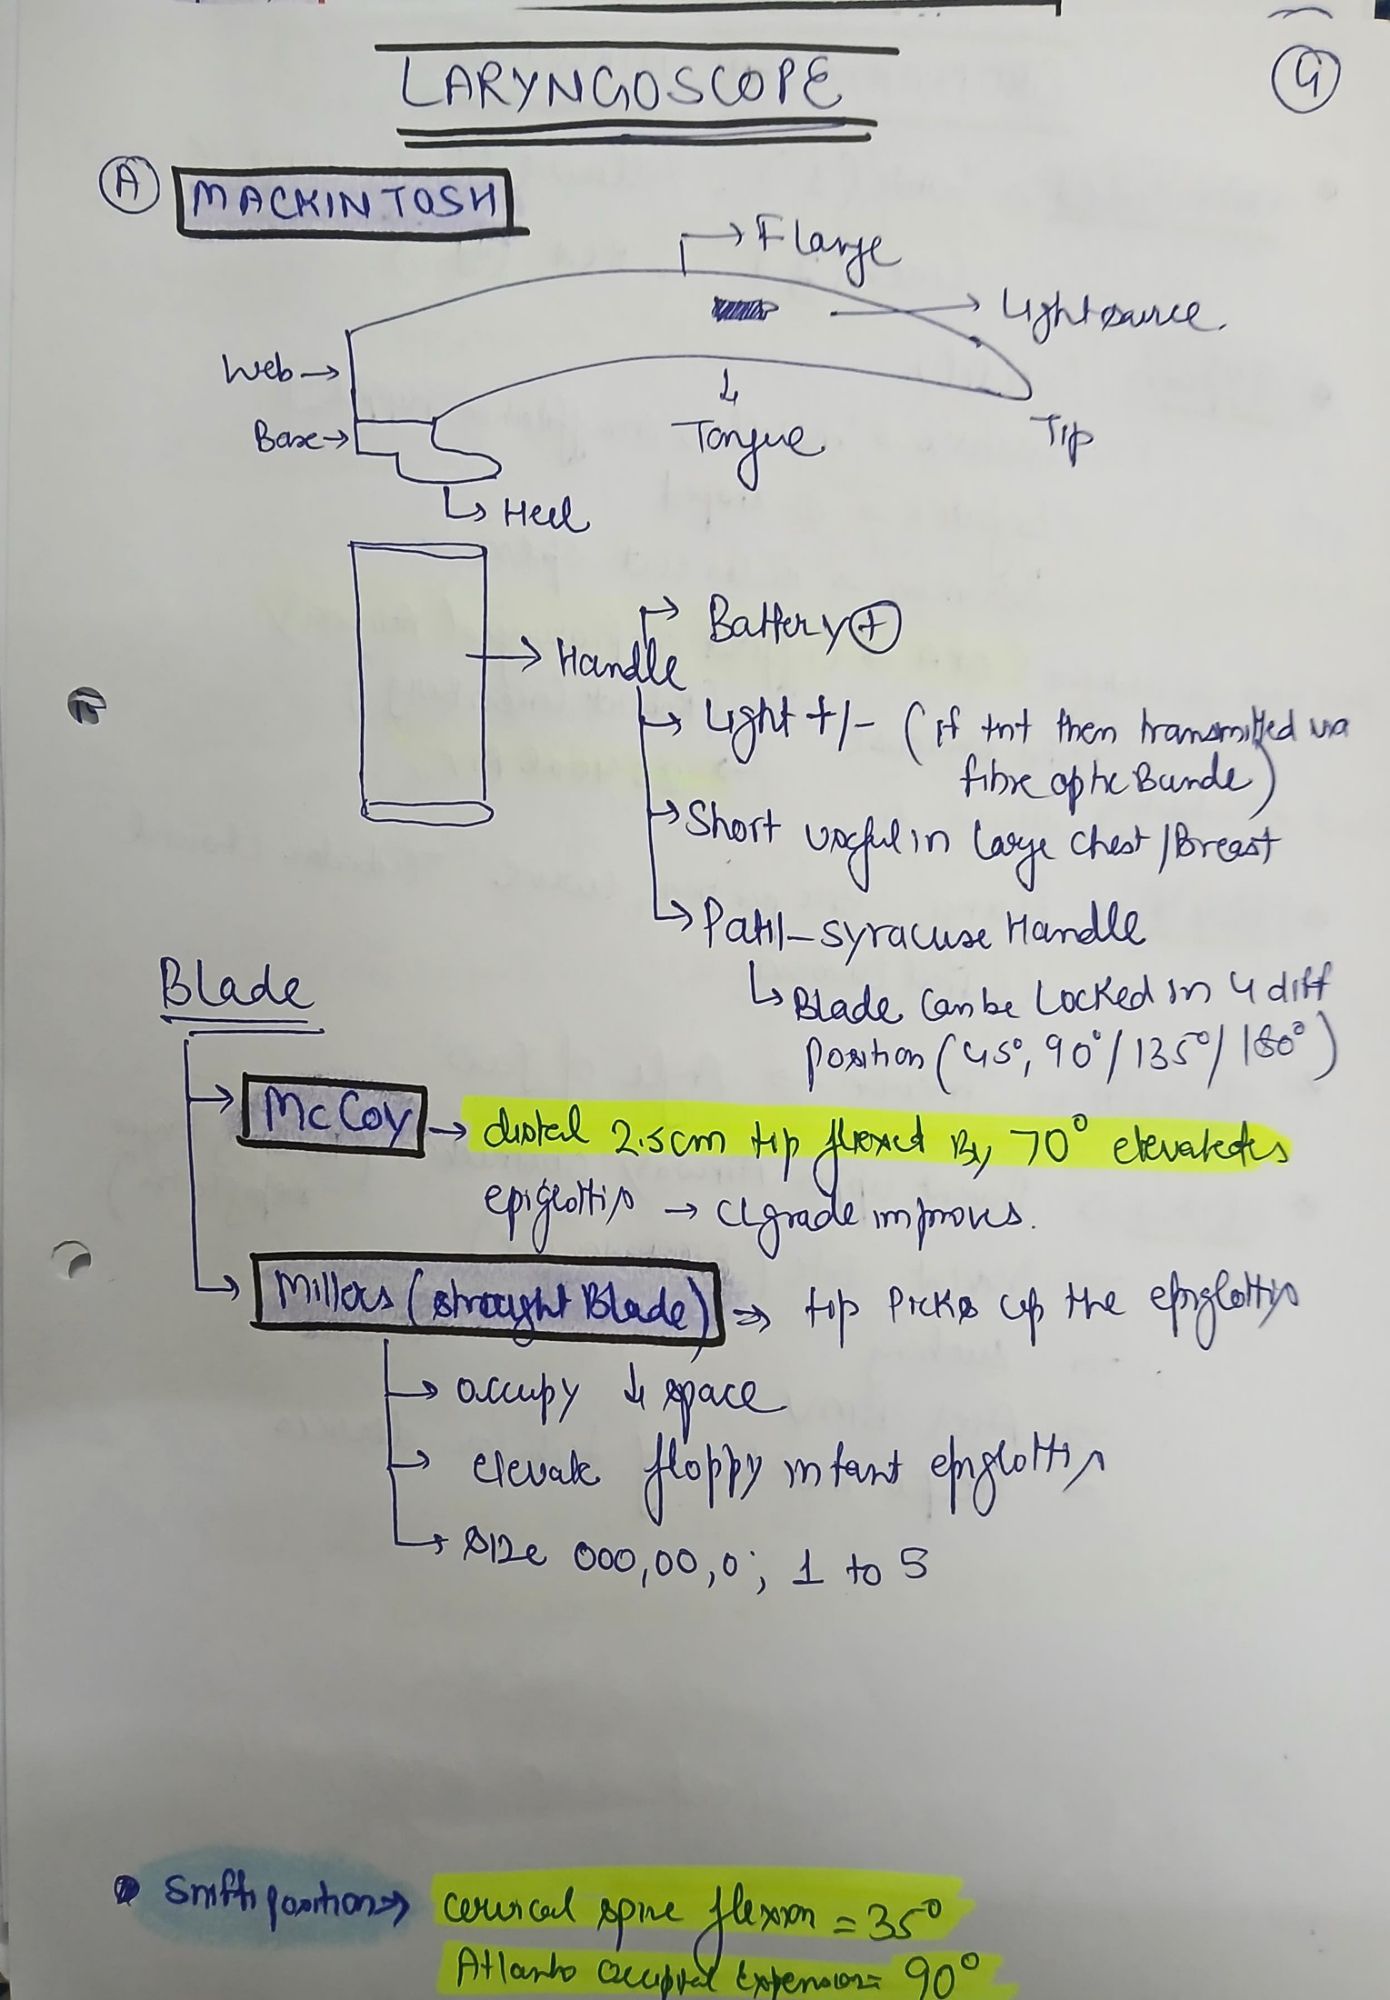 LARYNGOSCOPE
4
A MACKINTOSH
→ Flange
→ Light source
Web →
Base →
Tongue
Tip
→ Heel
→ Battery +
→ Handle
→ Light +/- (if tnt then transmitted via
fibre optic Bunde)
→ Short useful in large chest/Breast
→ Patil-syracuse Handle
↳ Blade can be Locked in 4 diff
position (45°, 90°/135°/180°)
Blade
→ McCoy → distal 2.5cm tip flexed By 70° elevates
epiglottis → CL grade improves.
→ Millers (straight Blade) ⇒ tip Picks up the epiglottis
→ occupy ↓ space
→ elevate floppy infant epiglottis
→ size 000,00,0; 1 to 5
• Sniff position → cervical spine flexion = 35°
Atlanto occipital Extension = 90°